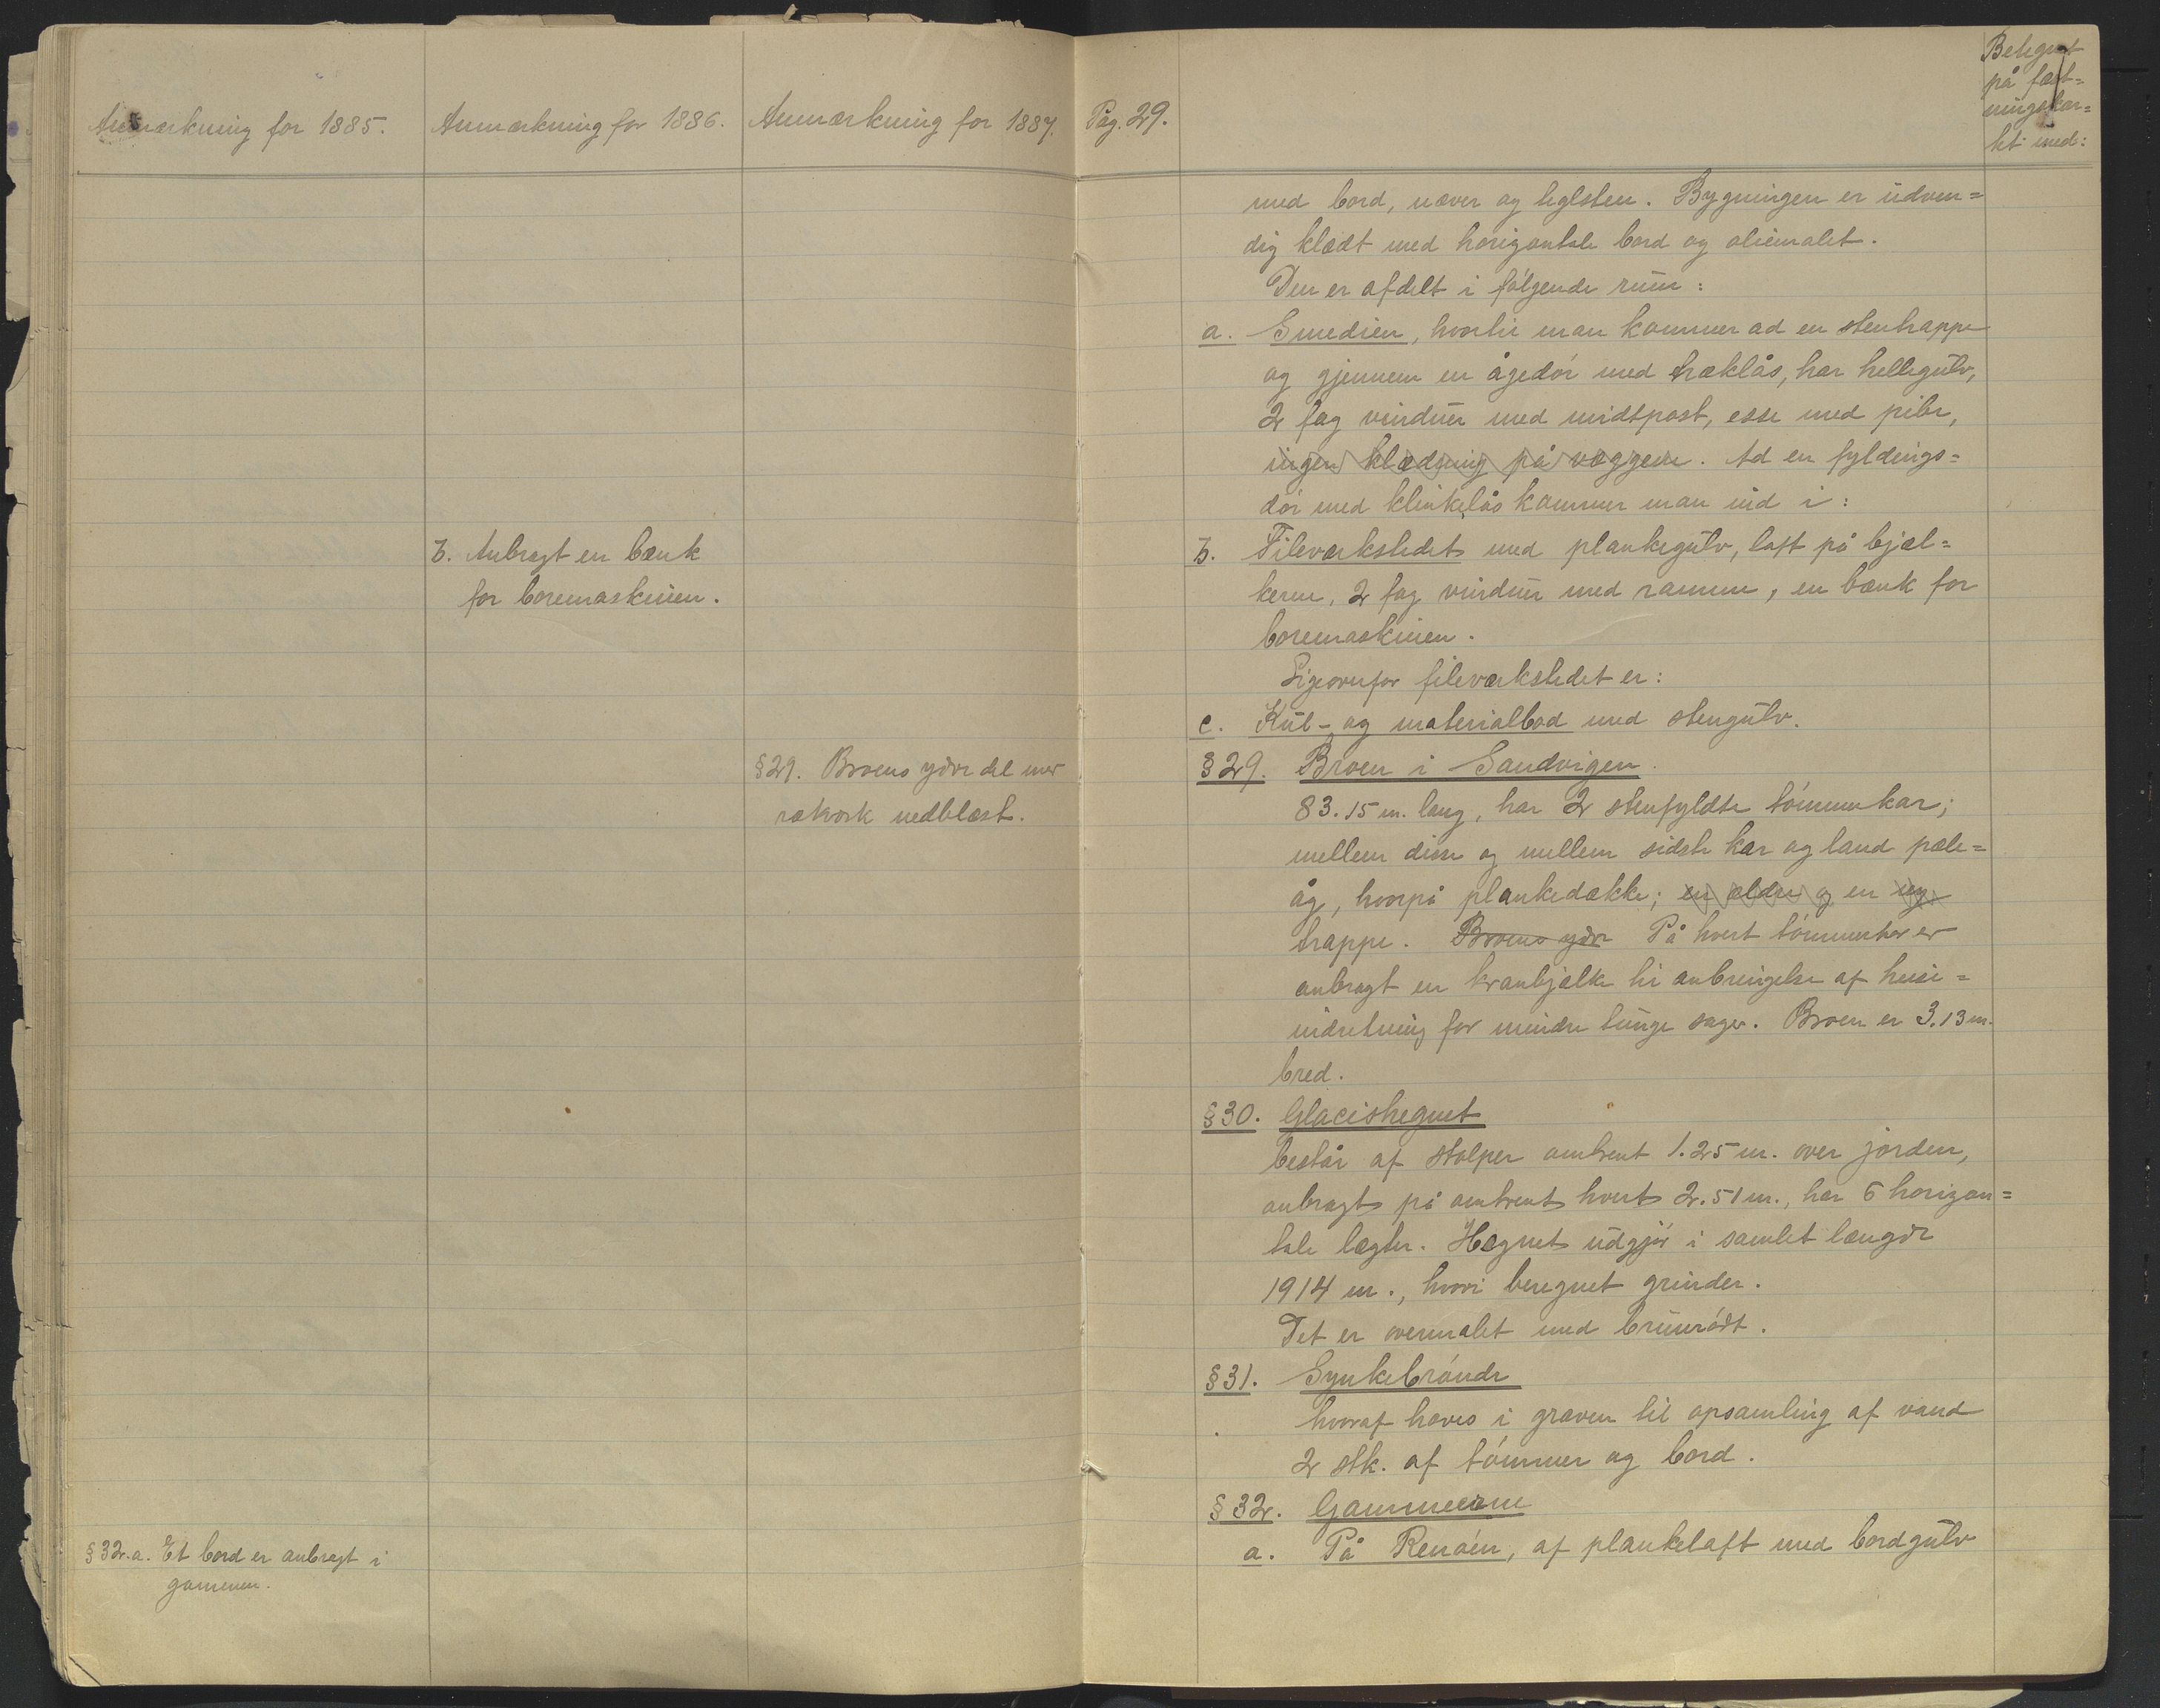 Anmærkning for 1885.
Anmærkning for 1886.
Anmærkning for 1887.
b. Anbragt en bænk
for boremaskinen.
§29. Broens ydre del mer
nedblæst.
§32.a. Et bord er anbragt i
gammen.
Pag. 29.
Betegnet
på fæst=
ningskar=
tet med:
med bord, næver og teglsten. Bygningen er udven=
dig klædt med horizontale bord og oliemalet.
Den er afdelt i følgende rum:
a. Smedien, hvortil man kommer ad en stentrappe
og gjennem en ågedör med træklås, har hellegulv,
2 fag vinduer med midtpost, esse med pibe,
ingen klædning på væggene. Ad en fyldings=
dör med klinkelås kommer man ind i:
b. Fileværkstedet med plankegulv, loft på bjæl=
kerne, 2 fag vinduer med ramme, en bænk for
boremaskinen.
Ligeoverfor fileværkstedet er:
c. Kul- og materialbod med stengulv.
§29. Broen i Sandvigen.
83.15 m. lang, har 2 stenfyldte tömmerkar;
mellem disse og mellem sidste kar og land pæle=
åg, hvorpå plankedække; en ældre og en ny
trappe. Broens ydre På hvert tömmerkar er
anbragt en kranbjælke til anbringelse af heise=
indretning for mindre tunge sager. Broen er 3.13 m.
bred.
§30. Glacishegnet
består af stolper omtrent 1.25 m. over jorden,
anbragt på omtrent hvert 2.51 m., har 6 horizon=
tale lægter. Hegnet udgjör i samlet længde
1914 m., hvori beregnet grinder.
Det er overmalet med brunrödt.
§31. Synkebrönde
hvoraf haves i graven til opsamling af vand
2 stk. af tömmer og bord.
§32. Gammerne
a. På Renöen, af plankelaft med bordgulv